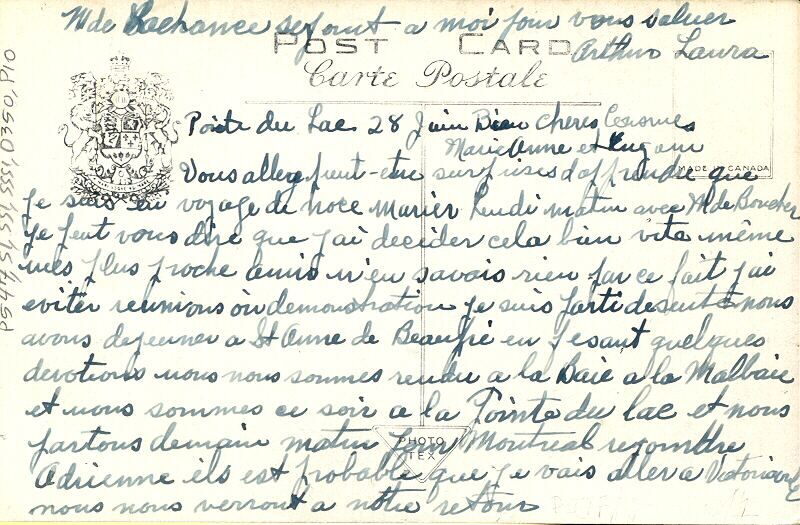 Mde Lachance se joint a moi pour vous saluer
Arthur Laura
POST CARD
Carte Postale
Pointe du Lac 28 Juin Bien cheres Cousines
Marie Anne et Eugenie
MADE IN CANADA
Vous allez peut-etre surprises d'apprendre que
je suis en voyage de noce marier Lundi matin avec Mde Boucher
Je peut vous dire que j'ai decider cela bien vite même
mes plus proche amis n'en savais rien par ce fait j'ai
eviter reunions ou demonstration je suis parti de nous
avons dejeuner a St Anne de Beaupré en fesant quelques
devotions nous nous sommes rendu a la Baie a la Malbaie
et nous sommes ce soir a la Pointe du lac et nous
partons demain matin pour Montreal rejoindre
Adrienne ils est probable que je vais aller a
nous nous verront a notre retour
PHOTO
TEX